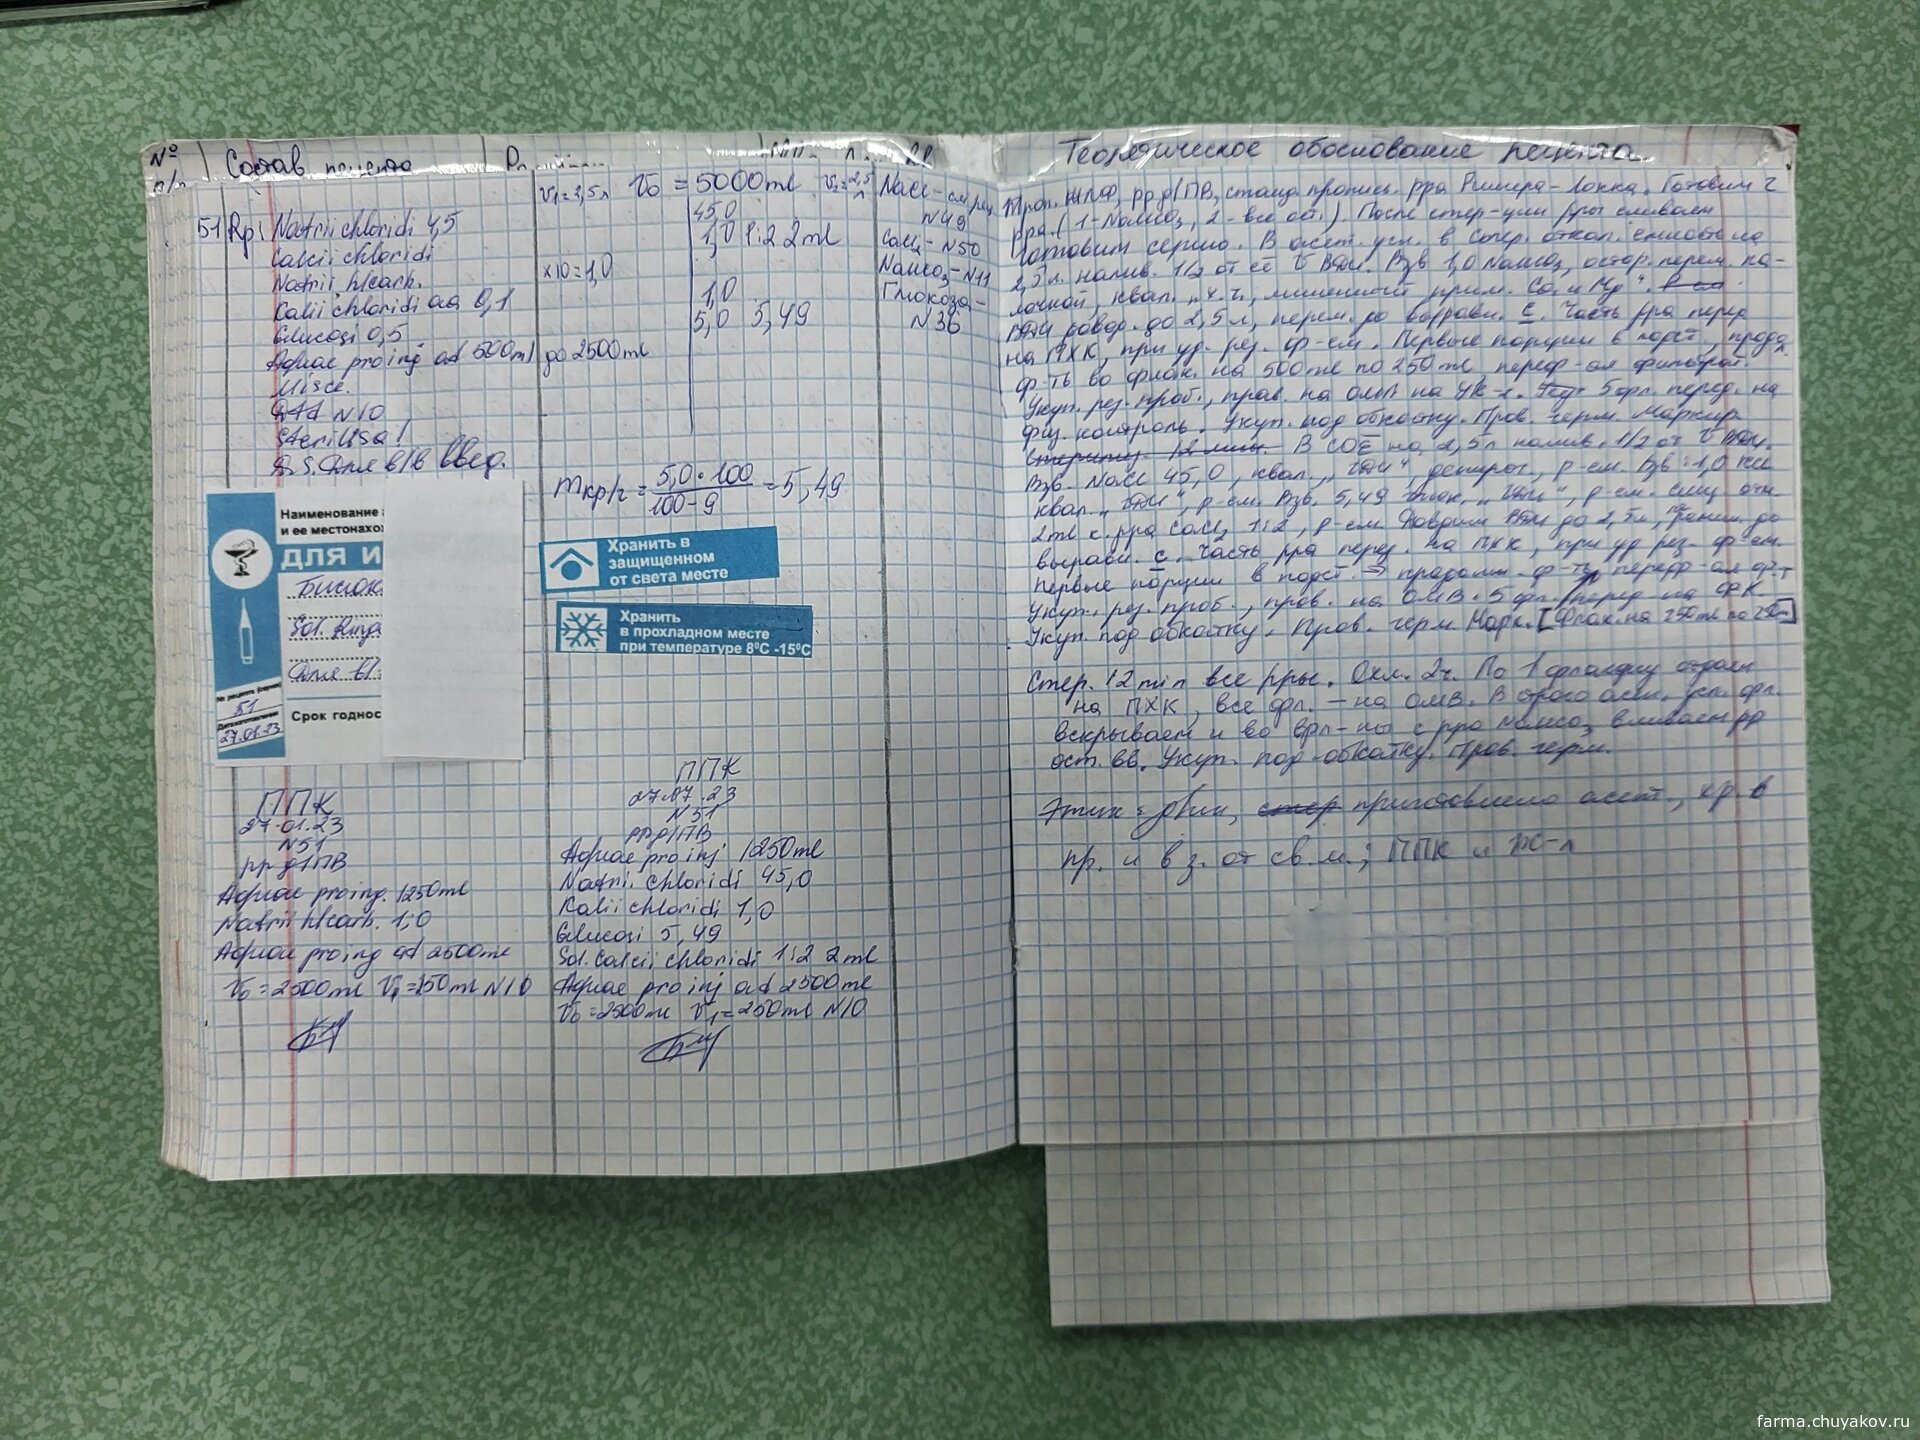 № п/п
Состав рецепта
51 Rp: Natrii chloridi 4,5
Calcii chloridi
Natrii h/carb.
Kalii chloridi aa 0,1
Glucosi 0,5
Aquae pro inj. ad 500ml
Misce.
D.t.d N10
Sterilisa!
D.S. Для в/в введ.
V₁=2,5л V₀ = 5000ml V₂=2,5л
45,0
1,0 1:2 2ml
x10=1,0
1,0
5,0 5,49
до 2500ml
NaCl - см. рец
N49
CaCl₂ - N50
NaHCO₃ - N11
Глюкоза -
N36
m кр/г = 5,0·100 / 100-9 = 5,49
Наименование
и ее местонахо
ДЛЯ И
Sol. Ringe
Для в/
№ рецепта (серия)
51
Дата изготовления
27.01.23
Срок годнос
Хранить в
защищенном
от света месте
Хранить
в прохладном месте
при температуре 8°С -15°С
ППК
27.01.23
N51
рр д/ПВ
Aquae pro inj. 1250ml
Natrii h/carb. 1,0
Aquae pro inj ad 2500ml
V₀=2500ml V₁=250ml N10
ППК
27.07.23
N51
рр д/ПВ
Aquae pro inj 1250ml
Natrii chloridi 45,0
Kalii chloridi 1,0
Glucosi 5,49
Sol. Calcii chloridi 1:2 2ml
Aquae pro inj ad 2500ml
V₀=2500ml V₁=250ml N10
Теоретическое обоснование рецепта
ЖЛФ, рр д/ПВ, станд. пропись. рра Рингера-Локка. Готовим 2
рра. (1-NaHCO₃, 2-все ост.). После стер-ции рры сливаем
Готовим серию. В асеп. усл. в стер. откал. емкость на
2,5л. налив. 1/2 от её V ВДИ. Взв 1,0 NaHCO₃, остор. перем. па-
лочкой, квал. "х.ч., прим. Ca и Mg".
ВДИ довод. до 2,5л, перем. до выравн. с. Часть рра перед
на ПХК, при уд. рез. ф-ем. Первые порции в подст, продол.
ф-ть во флак. на 500ml по 250ml фильтрой.
Укуп. рез. проб., пров. на ОМВ на УК-2. 5фл. перед. на
физ. контроль. Укуп. под обкатку. Пров. герм. Маркир.
В СОЕ на 2,5л налив. 1/2 от V ВДИ.
Взв. NaCl 45,0, квал. "ГДИ", депирог., р-ем. Взв. 1,0 KCl
квал. "ГДИ", р-ем. Взв. 5,49 глюк. "ГДИ", р-ем.
2ml к. рра CaCl₂ 1:2, р-ем. ВДИ до 2,5л, до
выравн. с. Часть рра перед. на ПХК, при уд рез. ф-ем.
Первые порции в подст. → продолж. ф-ть,
Укуп. рез. проб., пров. на ОМВ. 5 фл. перед на ФК
Укуп. под обкатку. Пров. герм. Марк. [Флак. на 250ml по 250ml]
Стер. 12min все рры. Охл. 2ч. По 1 флакону отдаем
на ПХК, все фл. - на ОМВ. В асеп. усл. фл.
вскрываем и во фл-ны с рра NaHCO₃ вливаем рр
ост. вв. Укуп. под обкатку. Пров. герм.
приготовлено асепт., хр. в
пр. и в з. от св. м.; ППК и
farma.chuyakov.ru